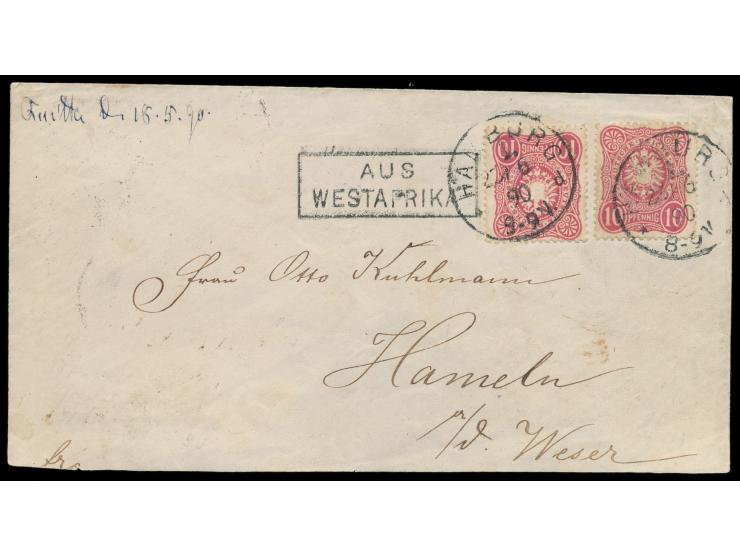 Quitta d. 18.5.90.
AUS
WESTAFRIKA
HAMBURG
90
8-9V.
10 PFENNIG 10
8-9V
Frau Otto Kuhlmann
Hameln
a/d. Weser